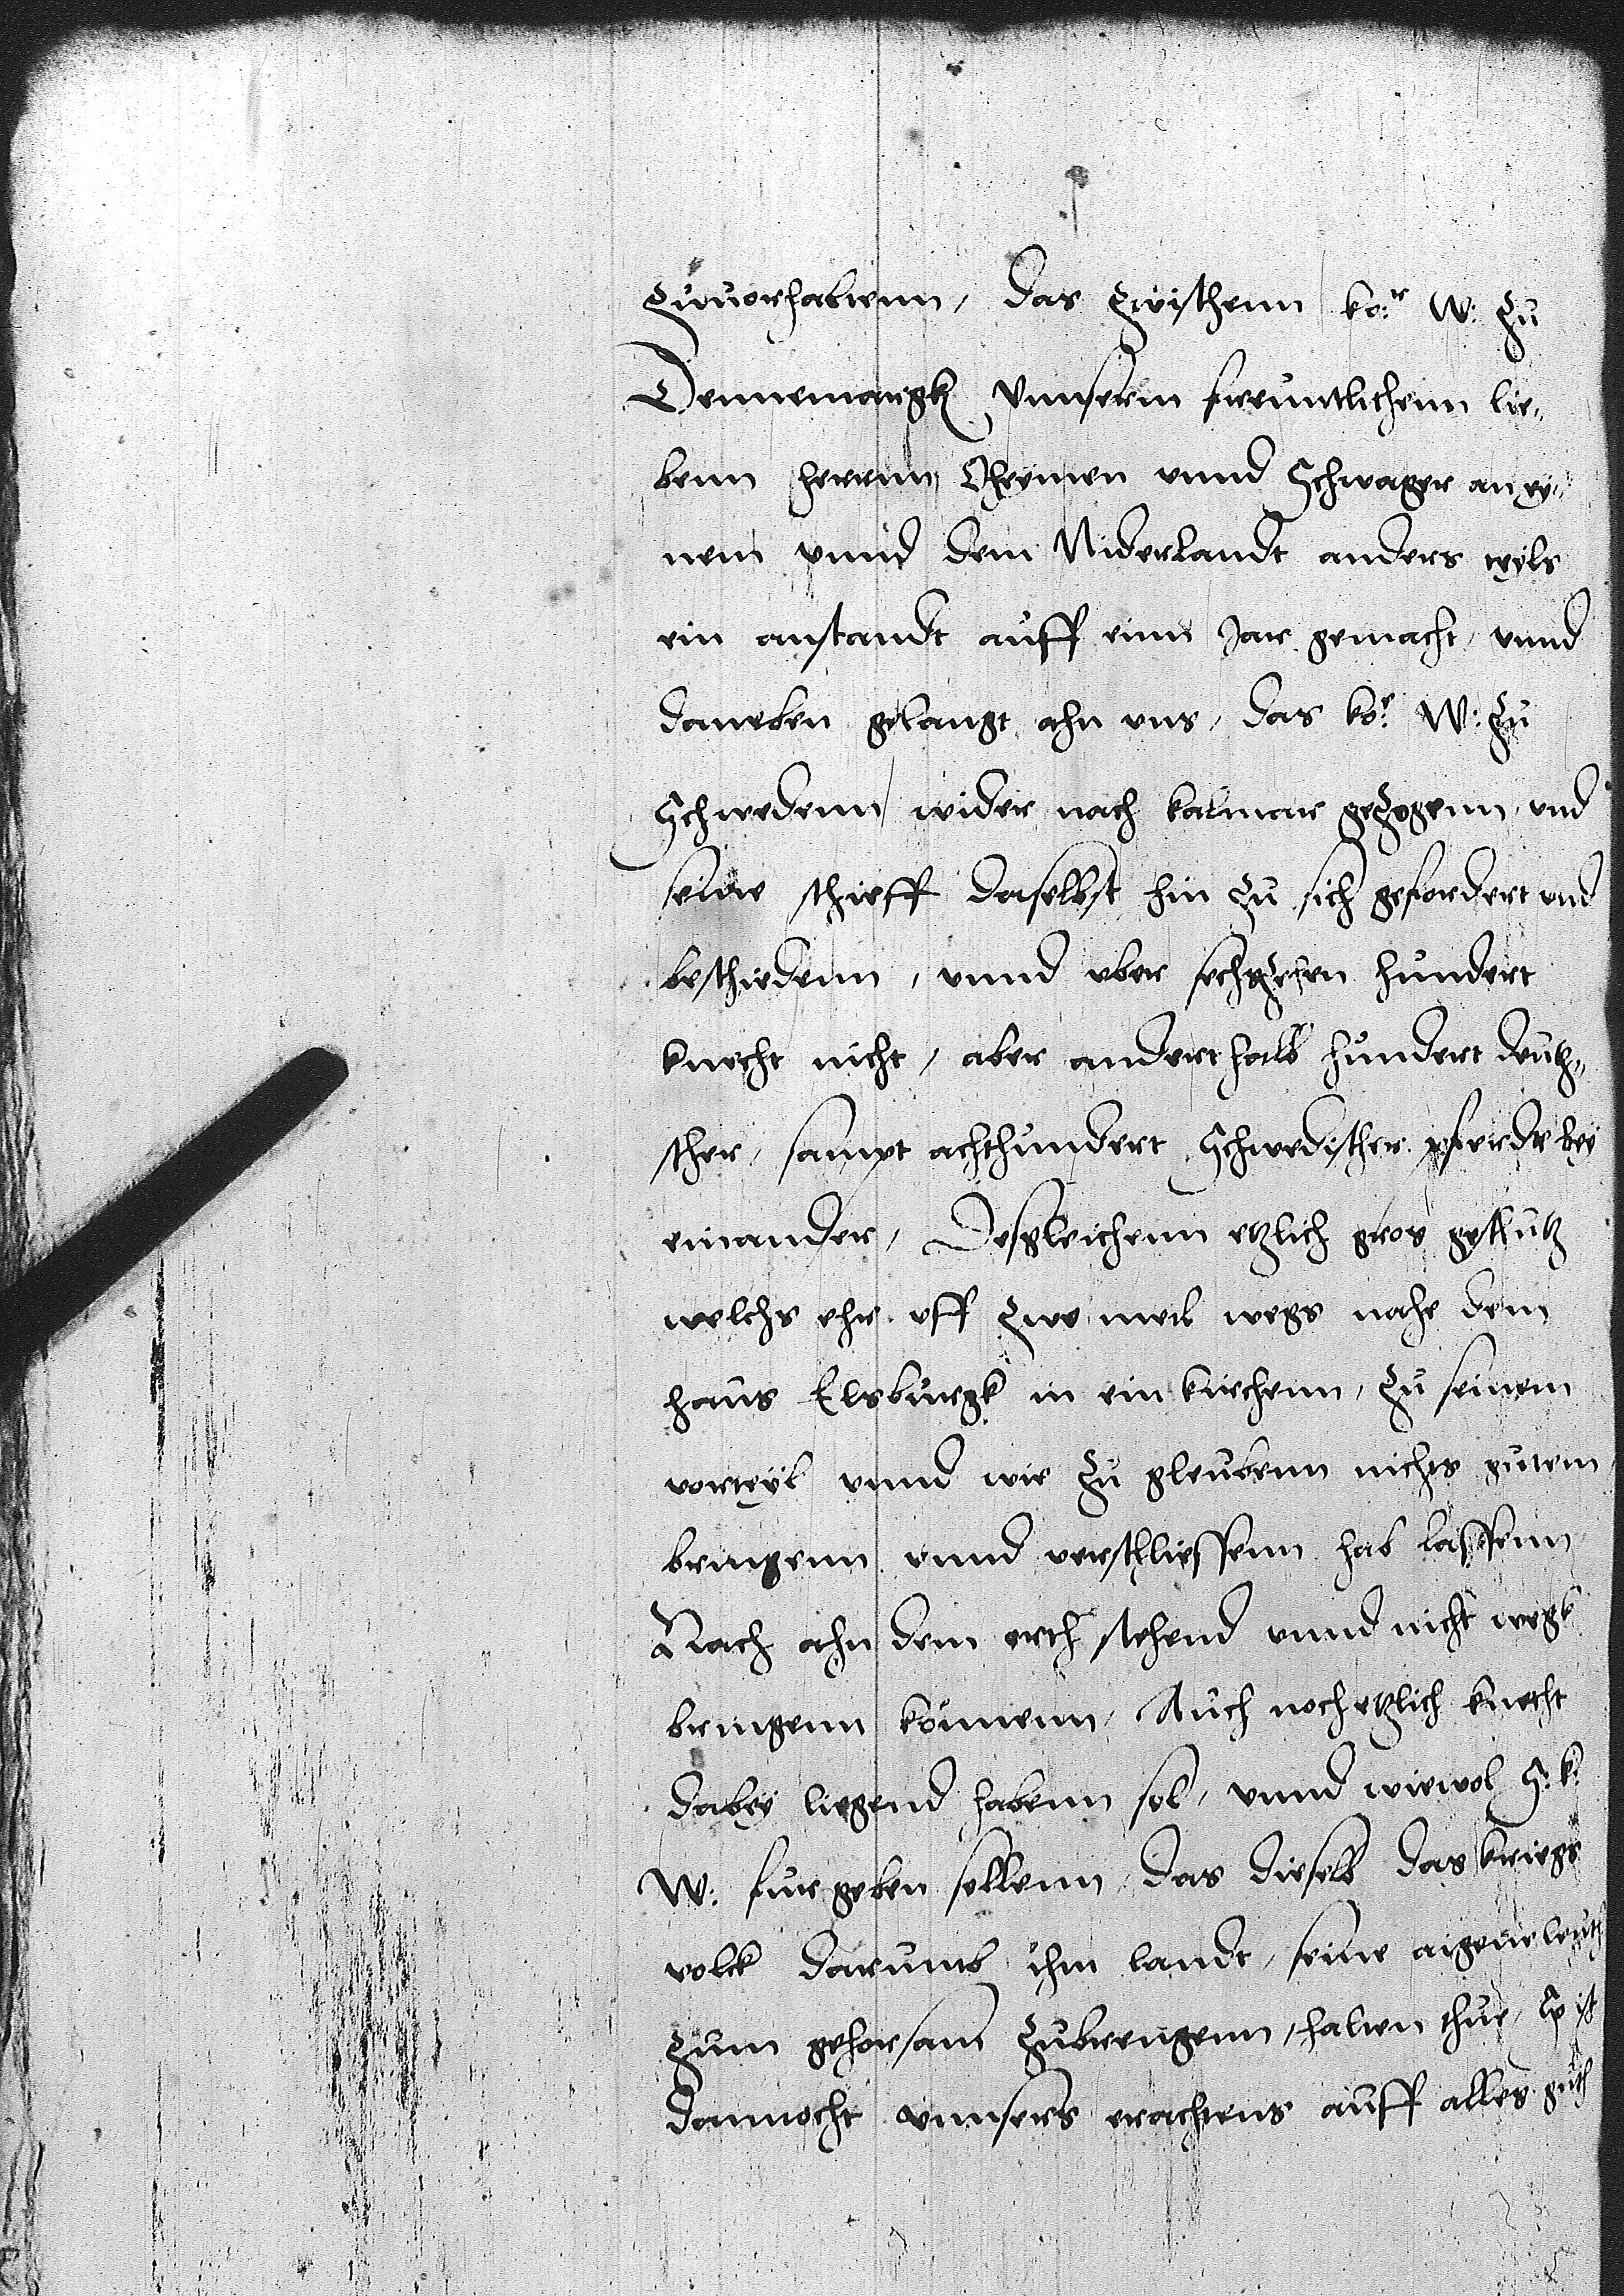 Zuuorhaltenn, das zwischenn ko:r W: zu
Dennemargk vnnserm freuntlichenn lie„
benn herrnn Oheymen vnnd Schwager an ey„
nem vnnd dem Niderlandt anders teyls
ein anstandt auff einn Jar gemacht, vnnd
daneben gelangt ahn vns, das ko:r W: zu
Schwedenn wider nach kalmar gezogenn, vnd
seine schieff daselbst hin zu sich gefordert vnd
beschiedenn, vnnd vber sechzehen hundert
knecht nicht, aber anderthalb hundert deutz„
scher, sampt achthundert Schwedischer pferde bey
einander, Desgleichenn etzlich gros geschutz
welchs ehr vff zwe meil wegs nahe dem
haus Elsburgk in ein kirchenn, zu seinem
vorteyl vnnd wie zu gleubenn nichts gutem
bringenn vnnd verschliessenn hab lassenn
Nach ahn dem orth stehend vnnd nicht wegk
bringenn könnenn, Auch noch etzlich knecht
dabey liegend habenn sol, vnnd wiewol S: k:
W: furgeben sollenn, das dieselb das kriegs
volck darumb ihm landt, seine aigene leuth
zum gehorsam zubrengenn, halten thue, So ist
dannocht vnnsers erachtens auff alles guth